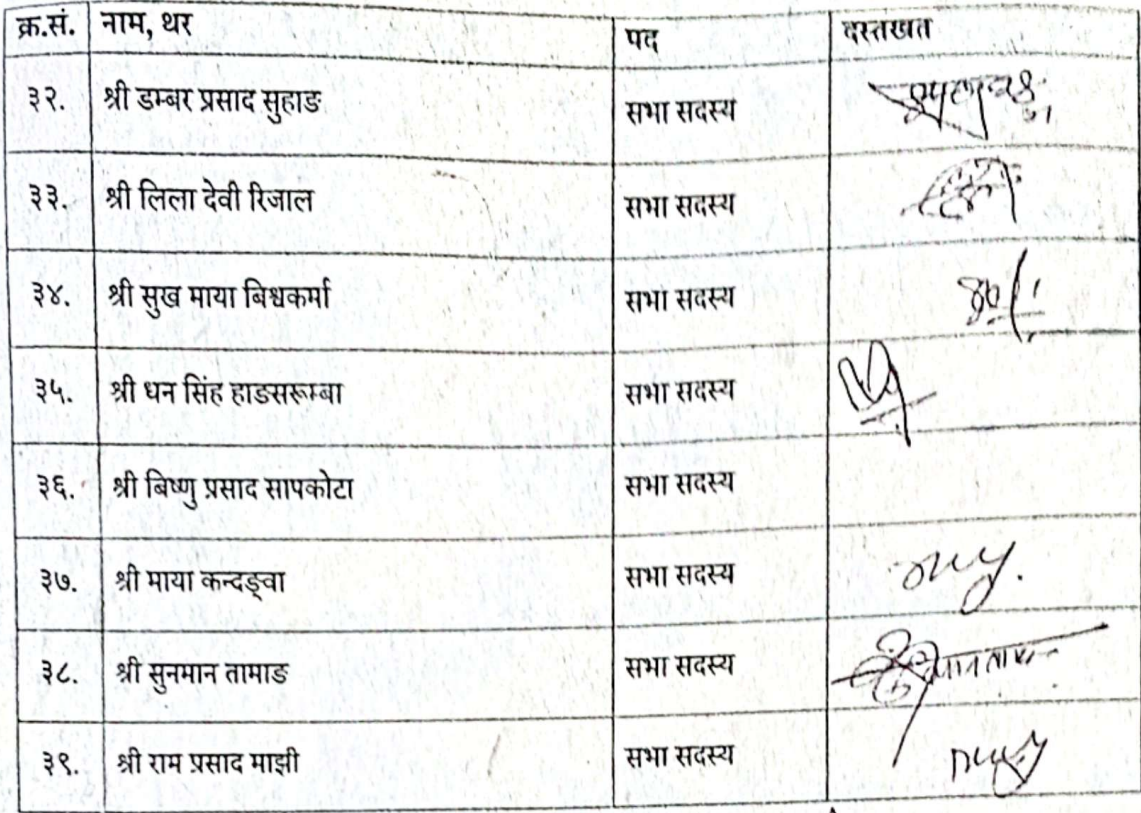 क्र.सं. नाम, थर पद दस्तखत
३२. श्री डम्बर प्रसाद सुहाङ सभा सदस्य
३३. श्री लिला देवी रिजाल सभा सदस्य
३४. श्री सुख माया बिश्वकर्मा सभा सदस्य
३५. श्री धन सिंह हाङसरूम्बा सभा सदस्य
३६. श्री बिष्णु प्रसाद सापकोटा सभा सदस्य
३७. श्री माया कन्दङ्वा सभा सदस्य
३८. श्री सुनमान तामाङ सभा सदस्य
३९. श्री राम प्रसाद माझी सभा सदस्य